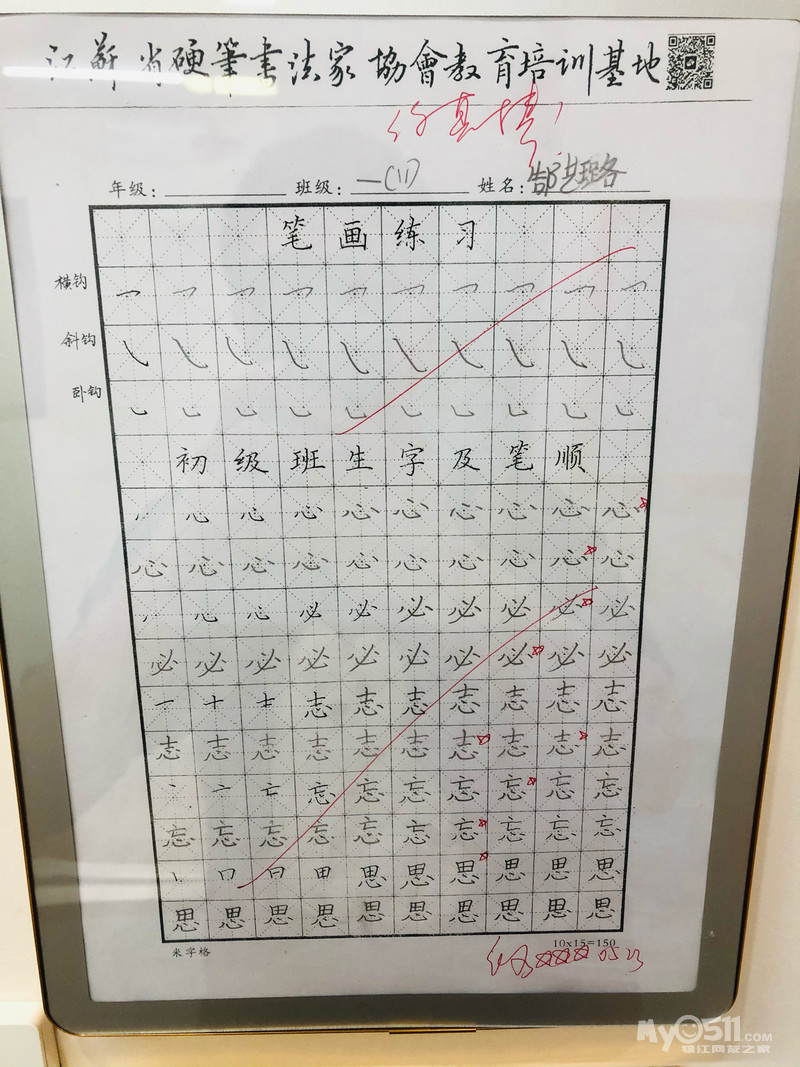 江蘇省硬筆書法家協會教育培训基地
你真棒!
年级: 班级:一(11) 姓名:
笔画练习
横钩
斜钩
卧钩
初级班生字及笔顺
心心心心心心心
心心心心心心心心心心
必必必必必必必
必必必必必必必必必必
一十士志志志志志志志
志志志志志志志志志志
丶亠亡忘忘忘忘忘忘忘
忘忘忘忘忘忘忘忘忘忘
口日田思思思思思思
思思思思思思思思思思
米字格 10x15=150
优 05 23
My0511.COM
镇江网友之家